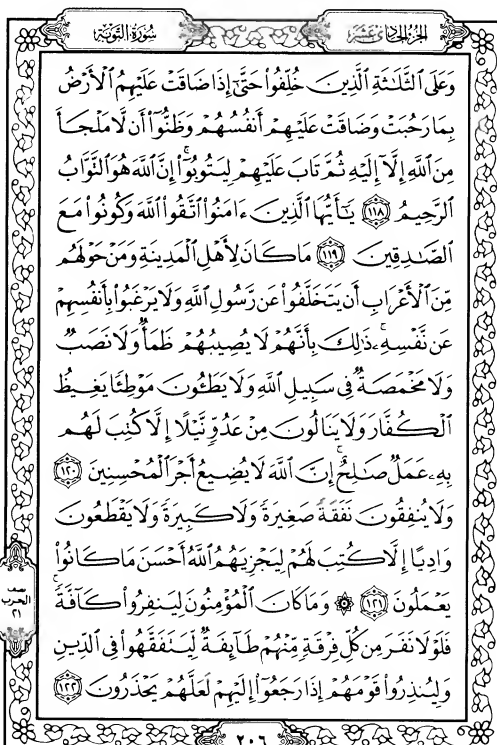 الجزء الحادي عشر
سورة التوبة
وَعَلَى ٱلثَّلَٰثَةِ ٱلَّذِينَ خُلِّفُوا۟ حَتَّىٰٓ إِذَا ضَاقَتْ عَلَيْهِمُ ٱلْأَرْضُ
بِمَا رَحُبَتْ وَضَاقَتْ عَلَيْهِمْ أَنفُسُهُمْ وَظَنُّوٓا۟ أَن لَّا مَلْجَأَ
مِنَ ٱللَّهِ إِلَّآ إِلَيْهِ ثُمَّ تَابَ عَلَيْهِمْ لِيَتُوبُوٓا۟ۚ إِنَّ ٱللَّهَ هُوَ ٱلتَّوَّابُ
ٱلرَّحِيمُ ١١٨ يَٰٓأَيُّهَا ٱلَّذِينَ ءَامَنُوا۟ ٱتَّقُوا۟ ٱللَّهَ وَكُونُوا۟ مَعَ
ٱلصَّٰدِقِينَ ١١٩ مَا كَانَ لِأَهْلِ ٱلْمَدِينَةِ وَمَنْ حَوْلَهُم
مِّنَ ٱلْأَعْرَابِ أَن يَتَخَلَّفُوا۟ عَن رَّسُولِ ٱللَّهِ وَلَا يَرْغَبُوا۟ بِأَنفُسِهِمْ
عَن نَّفْسِهِۦۚ ذَٰلِكَ بِأَنَّهُمْ لَا يُصِيبُهُمْ ظَمَأٌ وَلَا نَصَبٌ
وَلَا مَخْمَصَةٌ فِى سَبِيلِ ٱللَّهِ وَلَا يَطَـُٔونَ مَوْطِئًا يَغِيظُ
ٱلْكُفَّارَ وَلَا يَنَالُونَ مِنْ عَدُوٍّ نَّيْلًا إِلَّا كُتِبَ لَهُم
بِهِۦ عَمَلٌ صَٰلِحٌۚ إِنَّ ٱللَّهَ لَا يُضِيعُ أَجْرَ ٱلْمُحْسِنِينَ ١٢٠
وَلَا يُنفِقُونَ نَفَقَةً صَغِيرَةً وَلَا كَبِيرَةً وَلَا يَقْطَعُونَ
وَادِيًا إِلَّا كُتِبَ لَهُمْ لِيَجْزِيَهُمُ ٱللَّهُ أَحْسَنَ مَا كَانُوا۟
يَعْمَلُونَ ١٢١ ۞ وَمَا كَانَ ٱلْمُؤْمِنُونَ لِيَنفِرُوا۟ كَآفَّةًۚ
فَلَوْلَا نَفَرَ مِن كُلِّ فِرْقَةٍ مِّنْهُمْ طَآئِفَةٌ لِّيَتَفَقَّهُوا۟ فِى ٱلدِّينِ
وَلِيُنذِرُوا۟ قَوْمَهُمْ إِذَا رَجَعُوٓا۟ إِلَيْهِمْ لَعَلَّهُمْ يَحْذَرُونَ ١٢٢
نصف
الحزب
٢١
٢٠٦